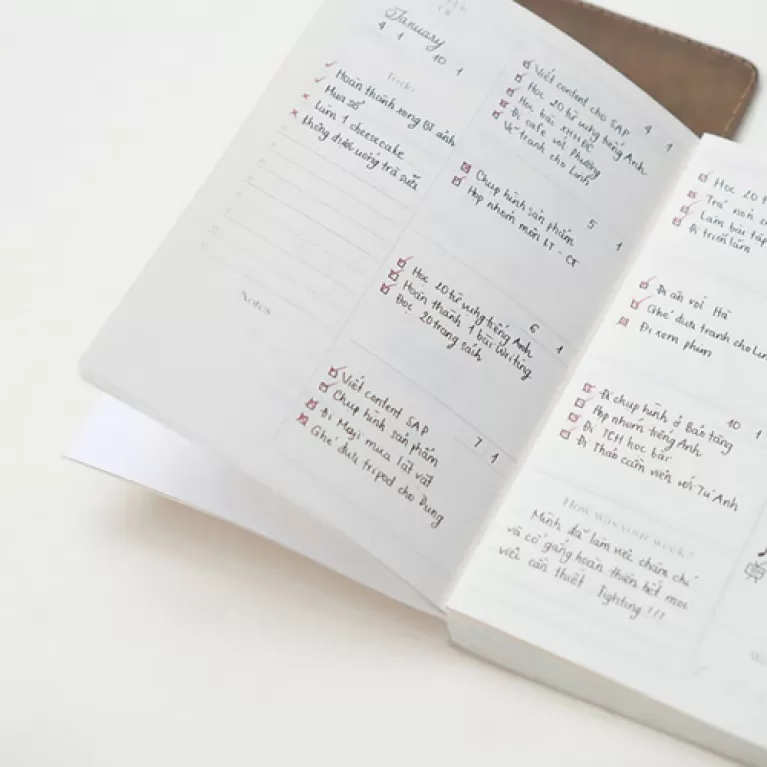 January
4 1
10 1
Hoàn thành xong BT ảnh
Mua sổ
Làm 1 cheesecake
Không được uống trà sữa
Notes
4 1
Viết content cho SAP
Học 20 từ vựng tiếng Anh
Học bài XHHĐC
Đi cafe với Phương
Vẽ tranh cho Linh
5 1
Chụp hình sản phẩm
Họp nhóm môn LT - CT
6 1
Học 20 từ vựng tiếng Anh
Hoàn thành 1 bài Writing
Đọc 20 trang sách
7 1
Viết content SAP
Chụp hình sản phẩm
Đi Maji mua lặt vặt
Ghé đưa tripod cho Dung
Học 20 t
Trả nón
Làm bài tập
Đi triển lãm
Đi ăn với Hà
Ghé đưa tranh cho Lin
Đi xem phim
10 1
Đi chụp hình ở Bảo tàng
Họp nhóm tiếng Anh
Đi TCH học bài
Đi Thảo cầm viên với Tú Anh
How was your week?
Mình đã làm việc chăm chỉ
và cố gắng hoàn thiện hết mọi
việc cần thiết. Fighting !!!